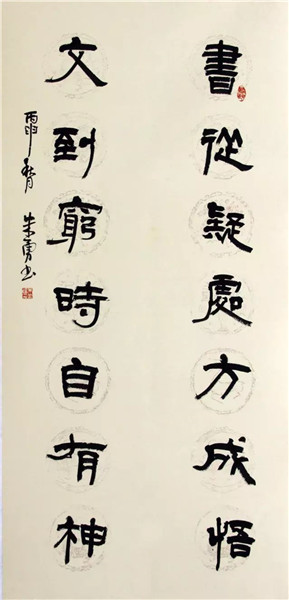 書從疑處方成悟
文到窮時自有神
丙申 朱勇书